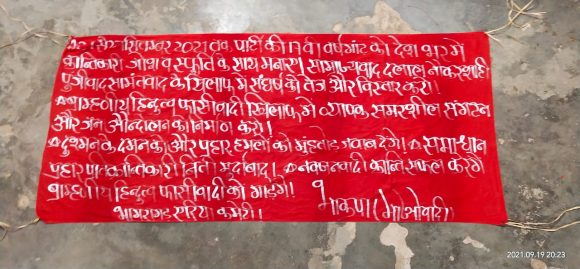 सितम्बर 2021 तक पार्टी की 17 वी वर्षगांठ को देश भर मे
क्रान्तिकारी जोश व स्फूर्ति के साथ मनाए। साम्राज्यवाद दलाल नौकरशाही
पुंजीवाद सामंतवाद के खिलाफ में संघर्ष को तेज और विस्तार करो।
हिन्दुत्व फासीवादी खिलाफ में व्यापक संगठन
और जन आन्दोलन को निर्माण करो।
दुश्मन के दमन को और प्रहार हमलो को मुंहतोड़ जवाब देंगे। समाधान
प्रहार मुर्दाबाद। क्रान्ति सफल करेंगे
हिन्दुत्व फासीवादी को गाड़ेंगे।
एरिया कमेटी। भाकपा (माओवादी)
2021.09.19 20:23